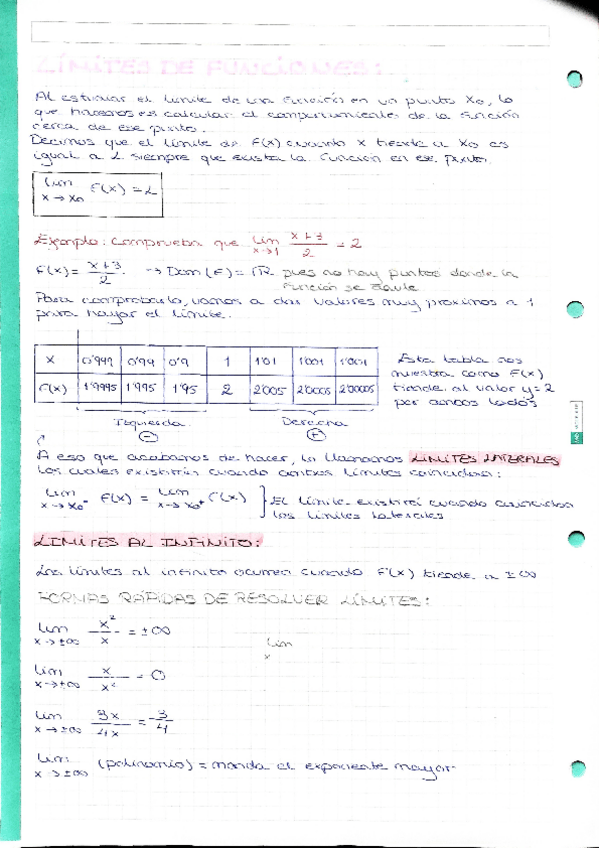 LÍMITES DE FUNCIONES:
Al estudiar el límite de una función en un punto X₀, lo
que hacemos es calcular el comportamiento de la función
cerca de ese punto.
Decimos que el límite de F(x) cuando x tiende a X₀ es
igual a L siempre que exista la función en ese punto.
lim x→x₀ F(x) = L
Ejemplo: Comprueba que lim x→1 x+3/2 = 2
F(x) = x+3/2 → Dom(F) = ℝ pues no hay puntos donde la
función se anule
Para comprobarlo, vamos a dar valores muy próximos a 1
para hallar el límite.
X 0'999 0'99 0'9 1 1'01 1'001 1'001
F(x) 1'9995 1'995 1'95 2 2'005 2'0005 2'0005
Esta tabla nos
muestra como F(x)
tiende al valor y=2
por ambos lados
Izquierda Derecha
(-) (+)
A eso que acabamos de hacer, lo llamamos LÍMITES LATERALES
los cuales existirán cuando ambos límites coincidan:
lim x→x₀⁻ F(x) = lim x→x₀⁺ F(x) } El límite existirá cuando
los límites laterales
LÍMITES AL INFINITO:
Los límites al infinito ocurren cuando F(x) tiende a ±∞
FORMAS RÁPIDAS DE RESOLVER LÍMITES:
lim x→±∞ x²/x = ±∞
lim x
lim x→±∞ x/x² = 0
lim x→±∞ 3x/4x = 3/4
lim x→±∞ (polinomio) = manda el exponente mayor